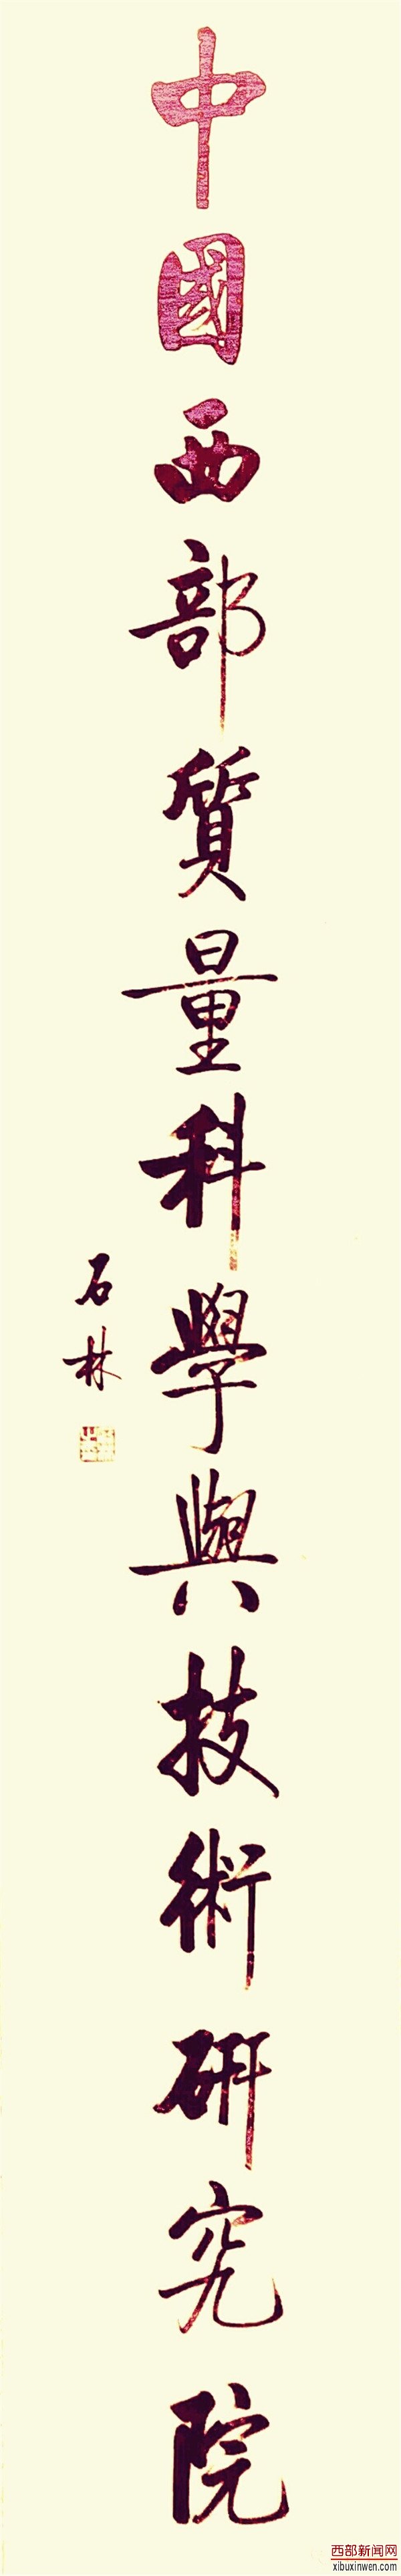 中國西部質量科學與技術研究院
石林
西部新闻网
xibuxinwen.com